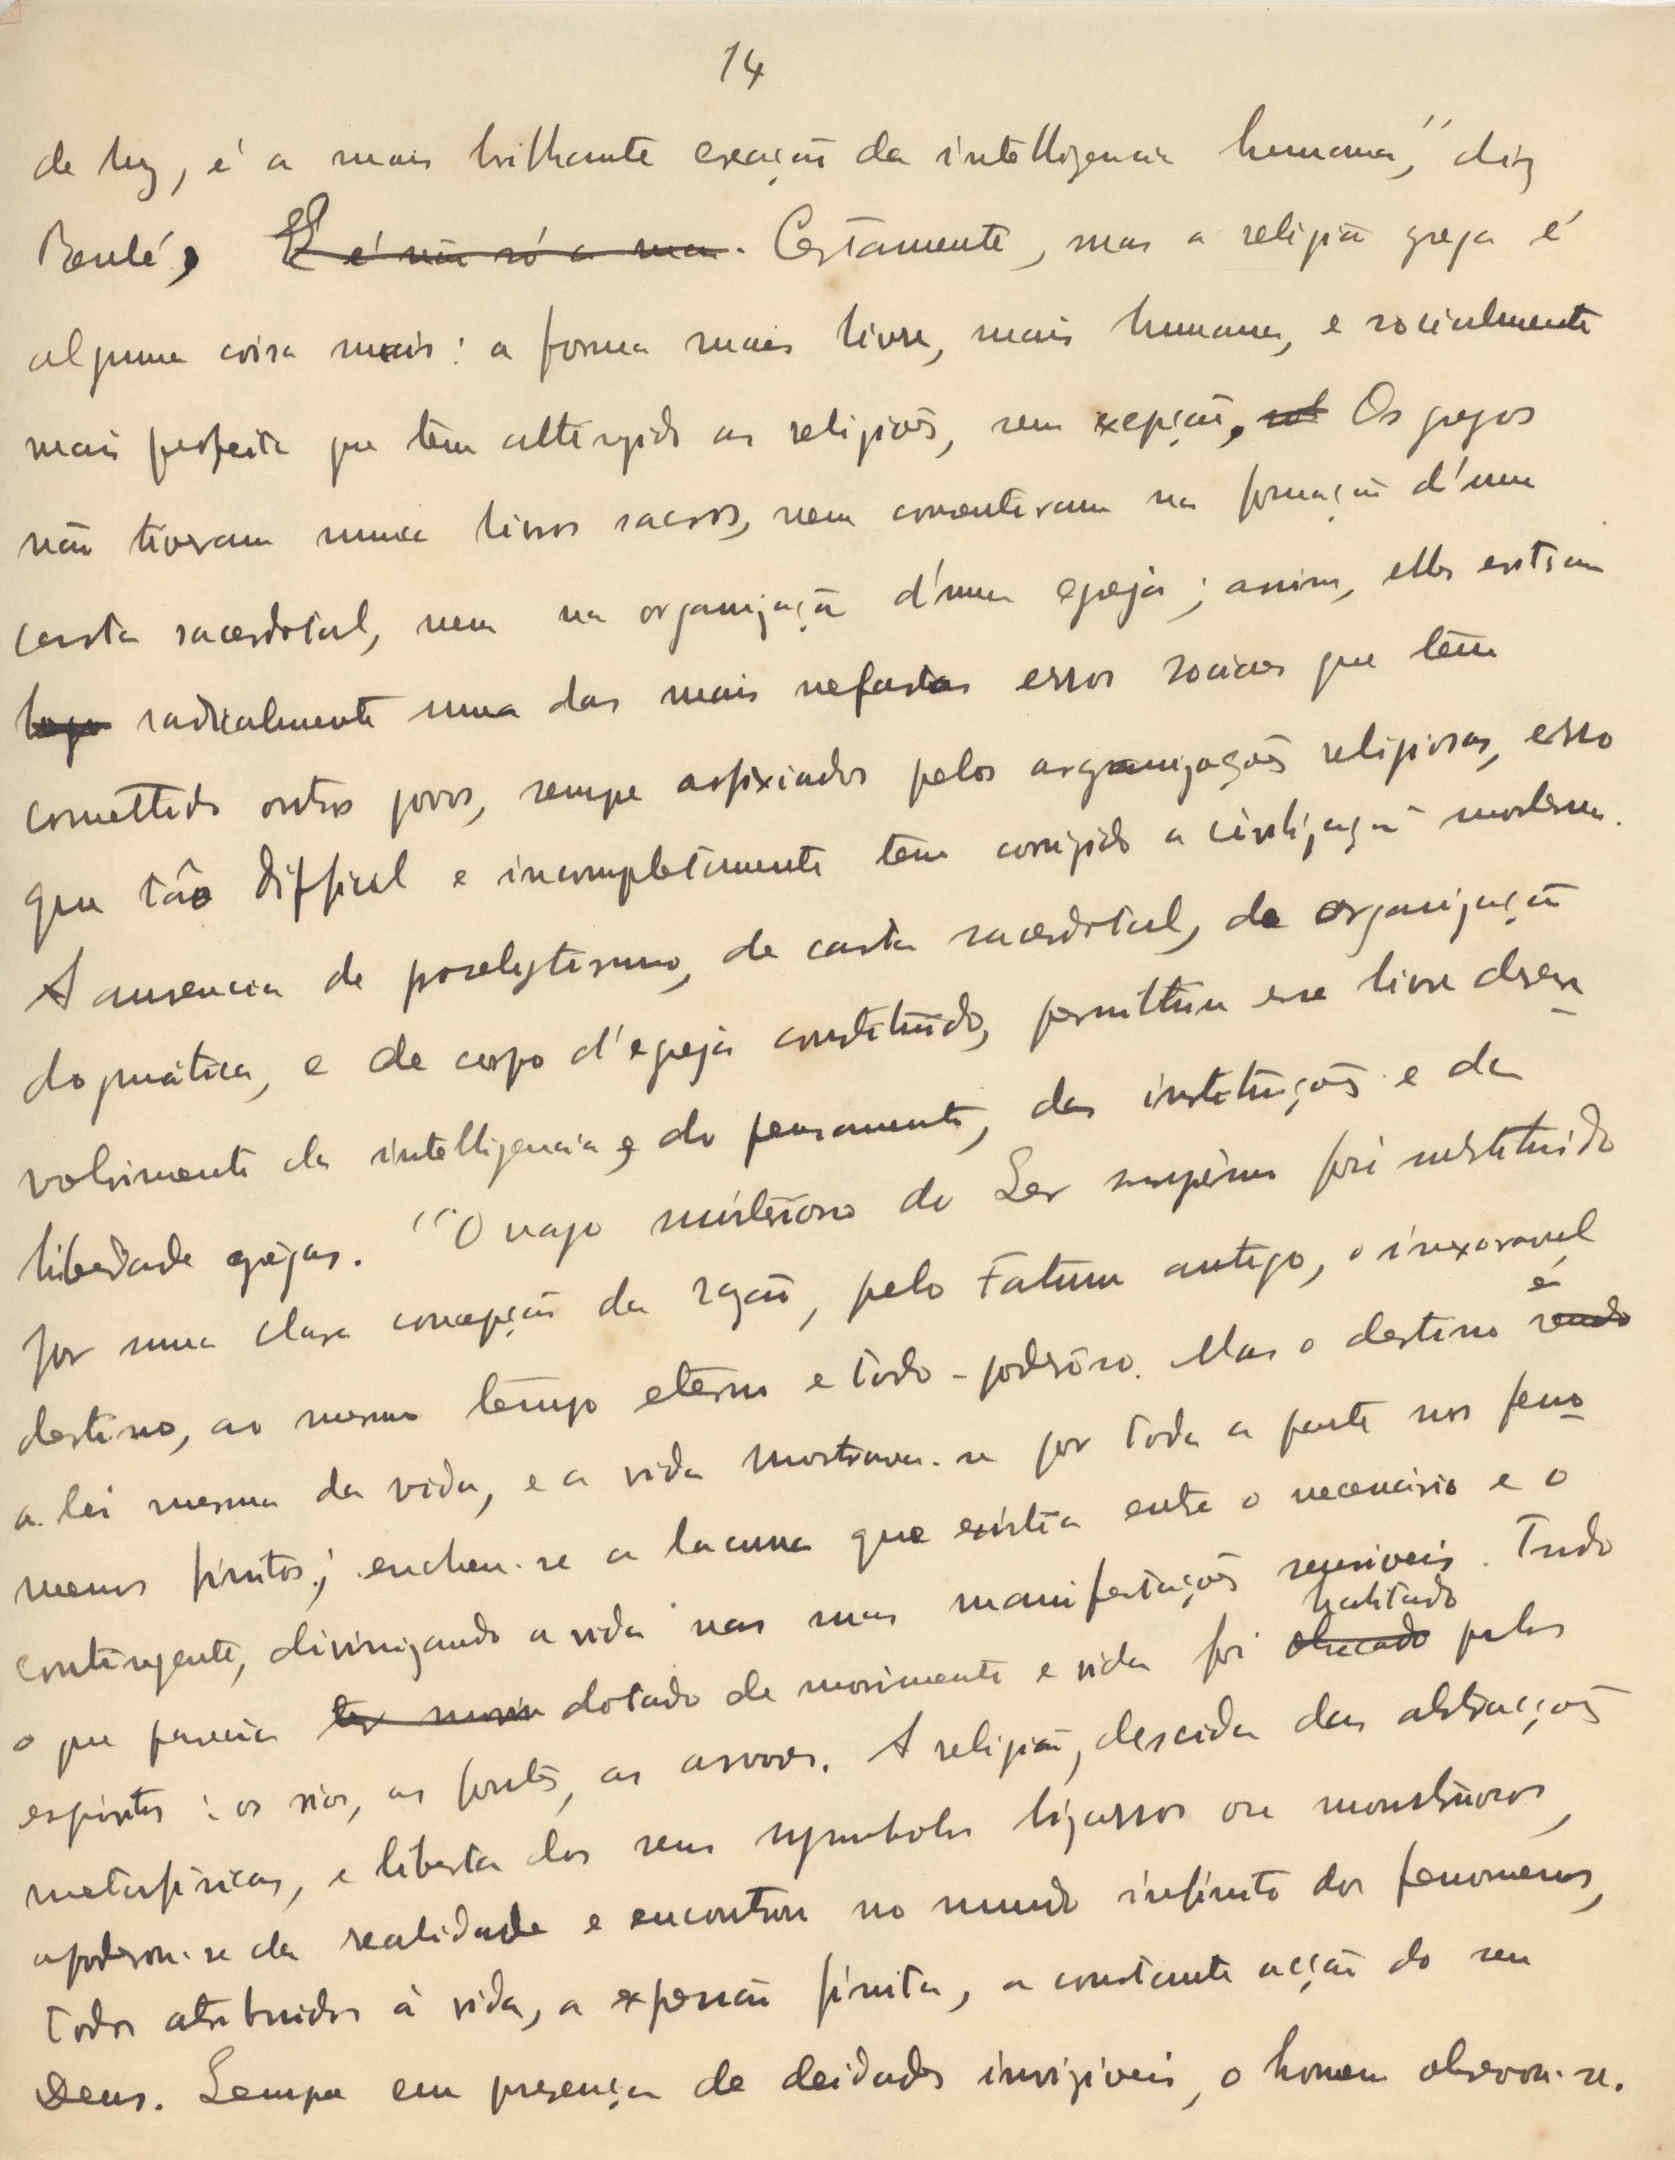 14
de luz, é a mais brilhante creação da intelligencia humana," diz
Beulé, E é não só a ma. Certamente, mas a religião grega é
alguma coisa mais: a forma mais livre, mais humana, e socialmente
mais perfeita que têm attingido as religiões, sem exepção. Os gregos
não tiveram nunca livros sacros, nem consentiram na formação d'uma
casta sacerdotal, nem na organização d'uma egreja; assim, elles evitam
logo radicalmente uma das mais nefastas erros sociaes que têm
comettido outros povos, sempre asfixiados pelas organizações religiosas, erro
que tão difficil e incompletamente tem corrigido a civilização moderna.
A ausencia de proselytismo, de casta sacerdotal, de organização
dogmática, e de corpo d'egreja constituído, permittiu esse livre desen-
volvimento da intelligencia e do pensamento, das instituições e da
liberdade gregas. "O vago misterioso do Ser supremo foi substituido
por uma clara concepção da razão, pelo Fatum antigo, o inexoravel
destino, ao mesmo tempo eterno e todo-poderoso. Mas o destino sendo é
a lei mesma da vida, e a vida mostrava-se por toda a parte nos feno-
menos finitos; encheu-se a lacuna que existia entre o necessário e o
contingente, divinizando a vida nas suas manifestações sensiveis. Tudo
o que parecia ter movim dotado de movimento e vida foi habitado pelos
espiritos: os rios, as fontes, as arvores. A religião, descida das abstracções
metafisicas, e liberta dos seus symbolos bizarros ou monstruosos,
apoderou-se da realidade e encontrou no mundo infinito dos fenomenos,
todos atribuidos à vida, a expressão finita, a constante acção do seu
Deus. Sempre em presença de deidades invizíveis, o homem observou-se.